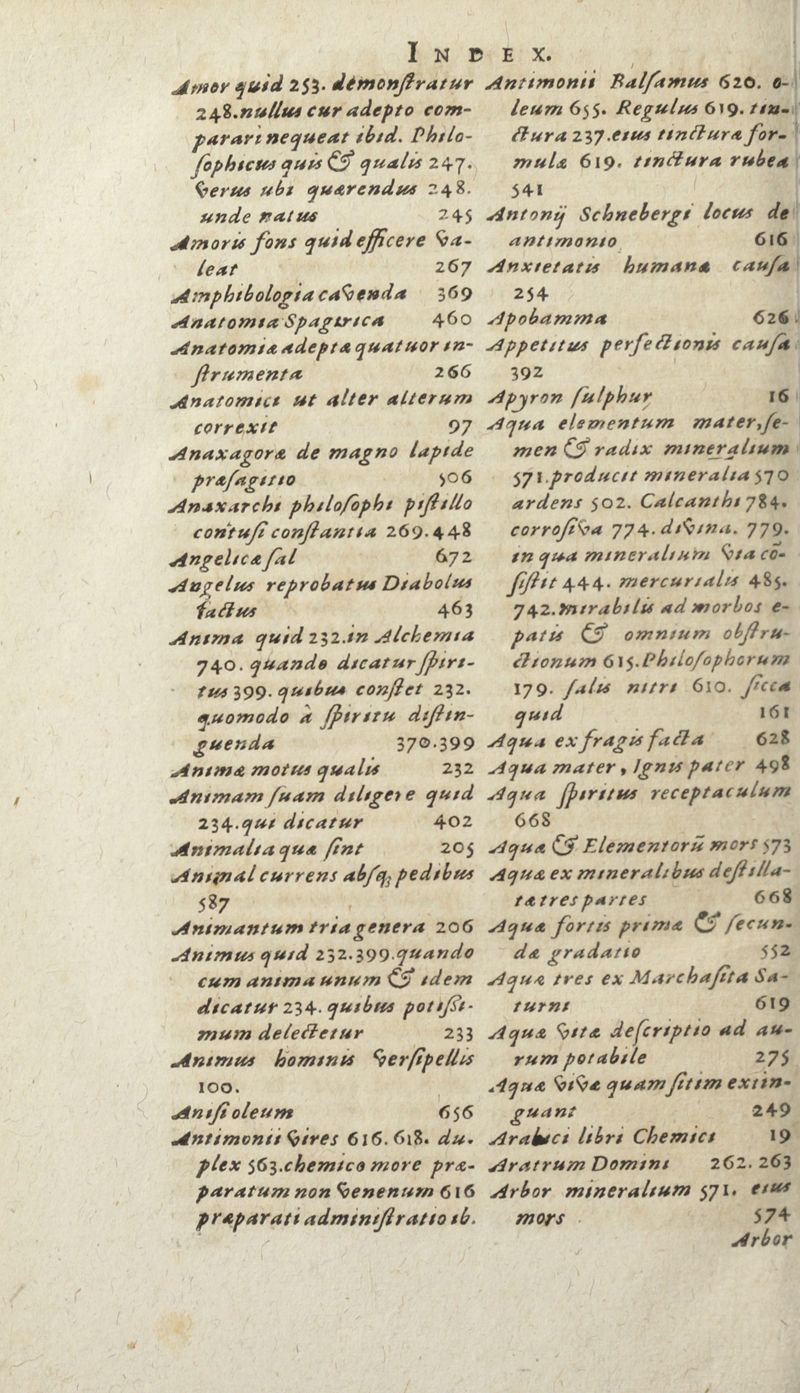 INDEX.
Amor quid 253. demonſtratur
248. nullus cur adepto com-
parari nequeat ibid. Philo-
ſophicus quis & qualis 247.
verus ubi quærendus 248.
unde natus 245
Amoris fons quid efficere va-
leat 267
Amphibologia cavenda 369
Anatomia Spagirica 460
Anatomiæ adeptæ quatuor in-
ſtrumenta 266
Anatomici ut alter alterum
correxit 97
Anaxagoræ de magno lapide
præſagitio 506
Anaxarchi philoſophi piſtillo
contuſi conſtantia 269. 448
Angelicæ ſal 672
Angelus reprobatus Diabolus
factus 463
Anima quid 232. in Alchemia
740. quando dicatur ſpiri-
tus 399. quibus conſtet 232.
quomodo à ſpiritu diſtin-
guenda 370. 399
Animæ motus qualis 232
Animam ſuam diligere quid
234. qui dicatur 402
Animalia quæ ſint 205
Animal currens abſq; pedibus
587
Animantum tria genera 206
Animus quid 232. 399. quando
cum anima unum & idem
dicatur 234. quibus potiſſi-
mum delectetur 233
Animus hominis verſipellis
100.
Aniſi oleum 656
Antimonii vires 616. 618. du-
plex 563. chemico more præ-
paratum non venenum 616
præparati adminiſtratio ib.
Antimonii Balſamus 620. o-
leum 655. Regulus 619. tin-
ctura 237. eius tincturæ for-
mula 619. tinctura rubea
541
Antonij Schnebergi locus de
antimonio 616
Anxietatis humanæ cauſa
254
Apobamma 626.
Appetitus perfectionis cauſa
392
Apyron ſulphur 16
Aqua elementum mater, ſe-
men & radix mineralium
571. producit mineralia 570
ardens 502. Calcanthi 784.
corroſiva 774. divina. 779.
in qua mineralium via cõ-
ſiſtit 444. mercurialis 485.
742. mirabilis ad morbos e-
patis & omnium obſtru-
ctionum 615. Philoſophorum
179. ſalis nitri 610. ſicca
quid 161
Aqua ex fragis facta 628
Aqua mater, Ignis pater 498
Aqua ſpiritus receptaculum
668
Aqua & Elementorũ mors 573
Aquæ ex mineralibus deſtilla-
tæ tres partes 668
Aquæ fortis primæ & ſecun-
dæ gradatio 552
Aquæ tres ex Marchaſita Sa-
turni 619
Aquæ vitæ deſcriptio ad au-
rum potabile 275
Aquæ vivæ quam ſitim extin-
guant 249
Arabici libri Chemici 19
Aratrum Domini 262. 263
Arbor mineralium 571. eius
mors 574
Arbor